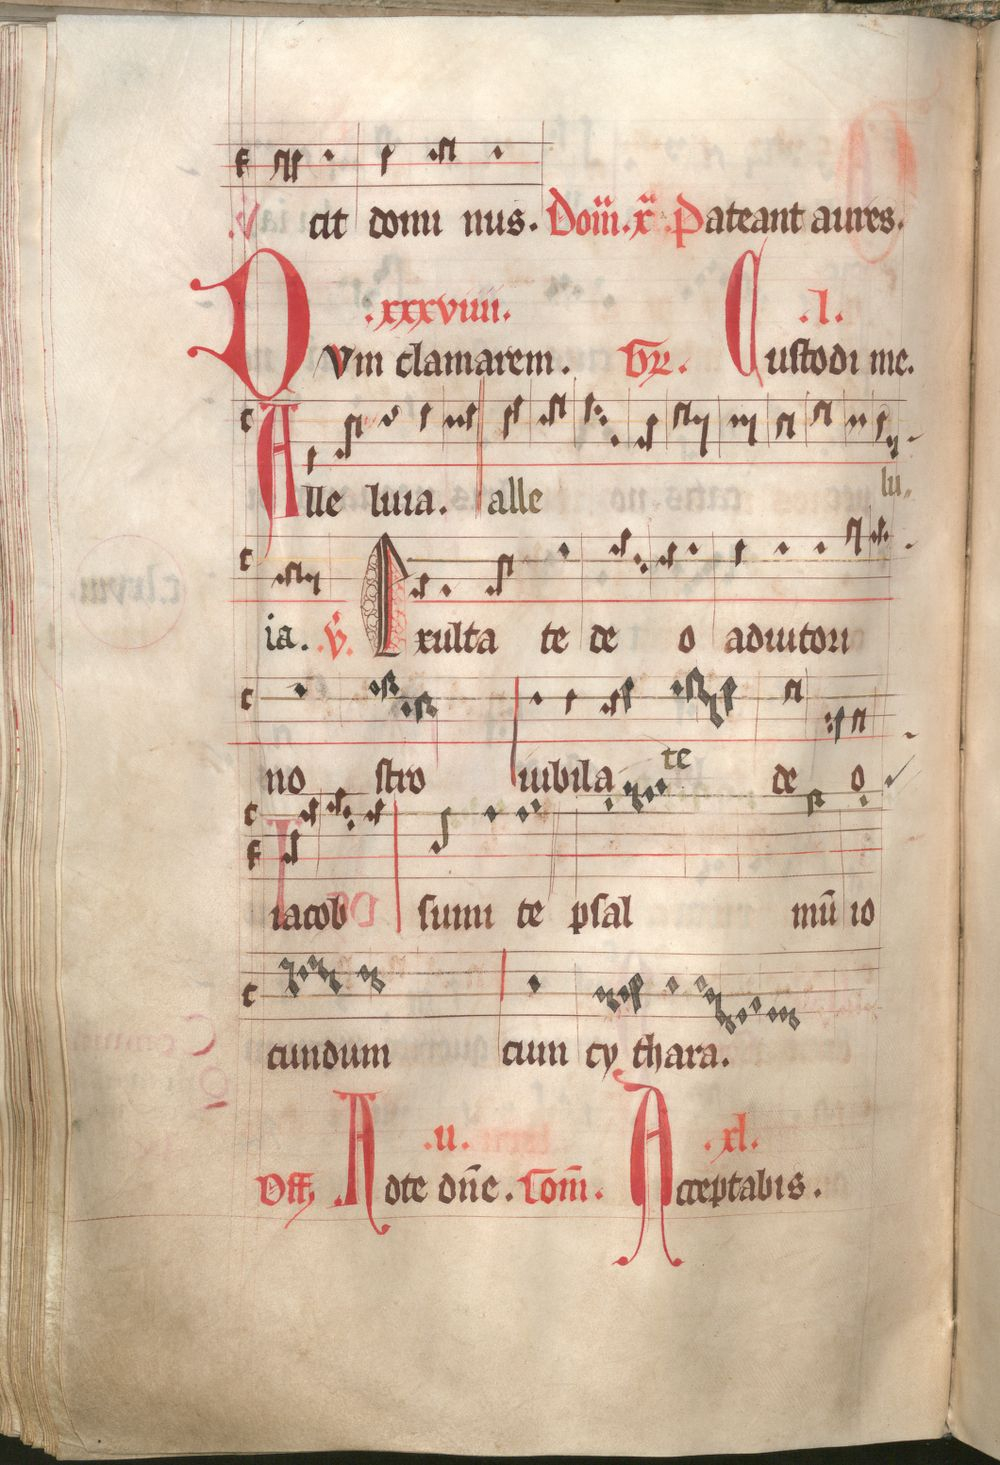 cit domi nus. Dom̄. x̄ Pateant aures.
.xxxviiii. .l.
DVm clamarem. Gr̄. Custodi me.
Alle luia. alle lu,
ia. V̄. Exulta te de o adiutori
no stro iubila te de o
iacob sumi te psal mū io
cundum cum cy thara.
.ii. .xl.
Off, Adte dn̄e. Com̄. Acceptabis.